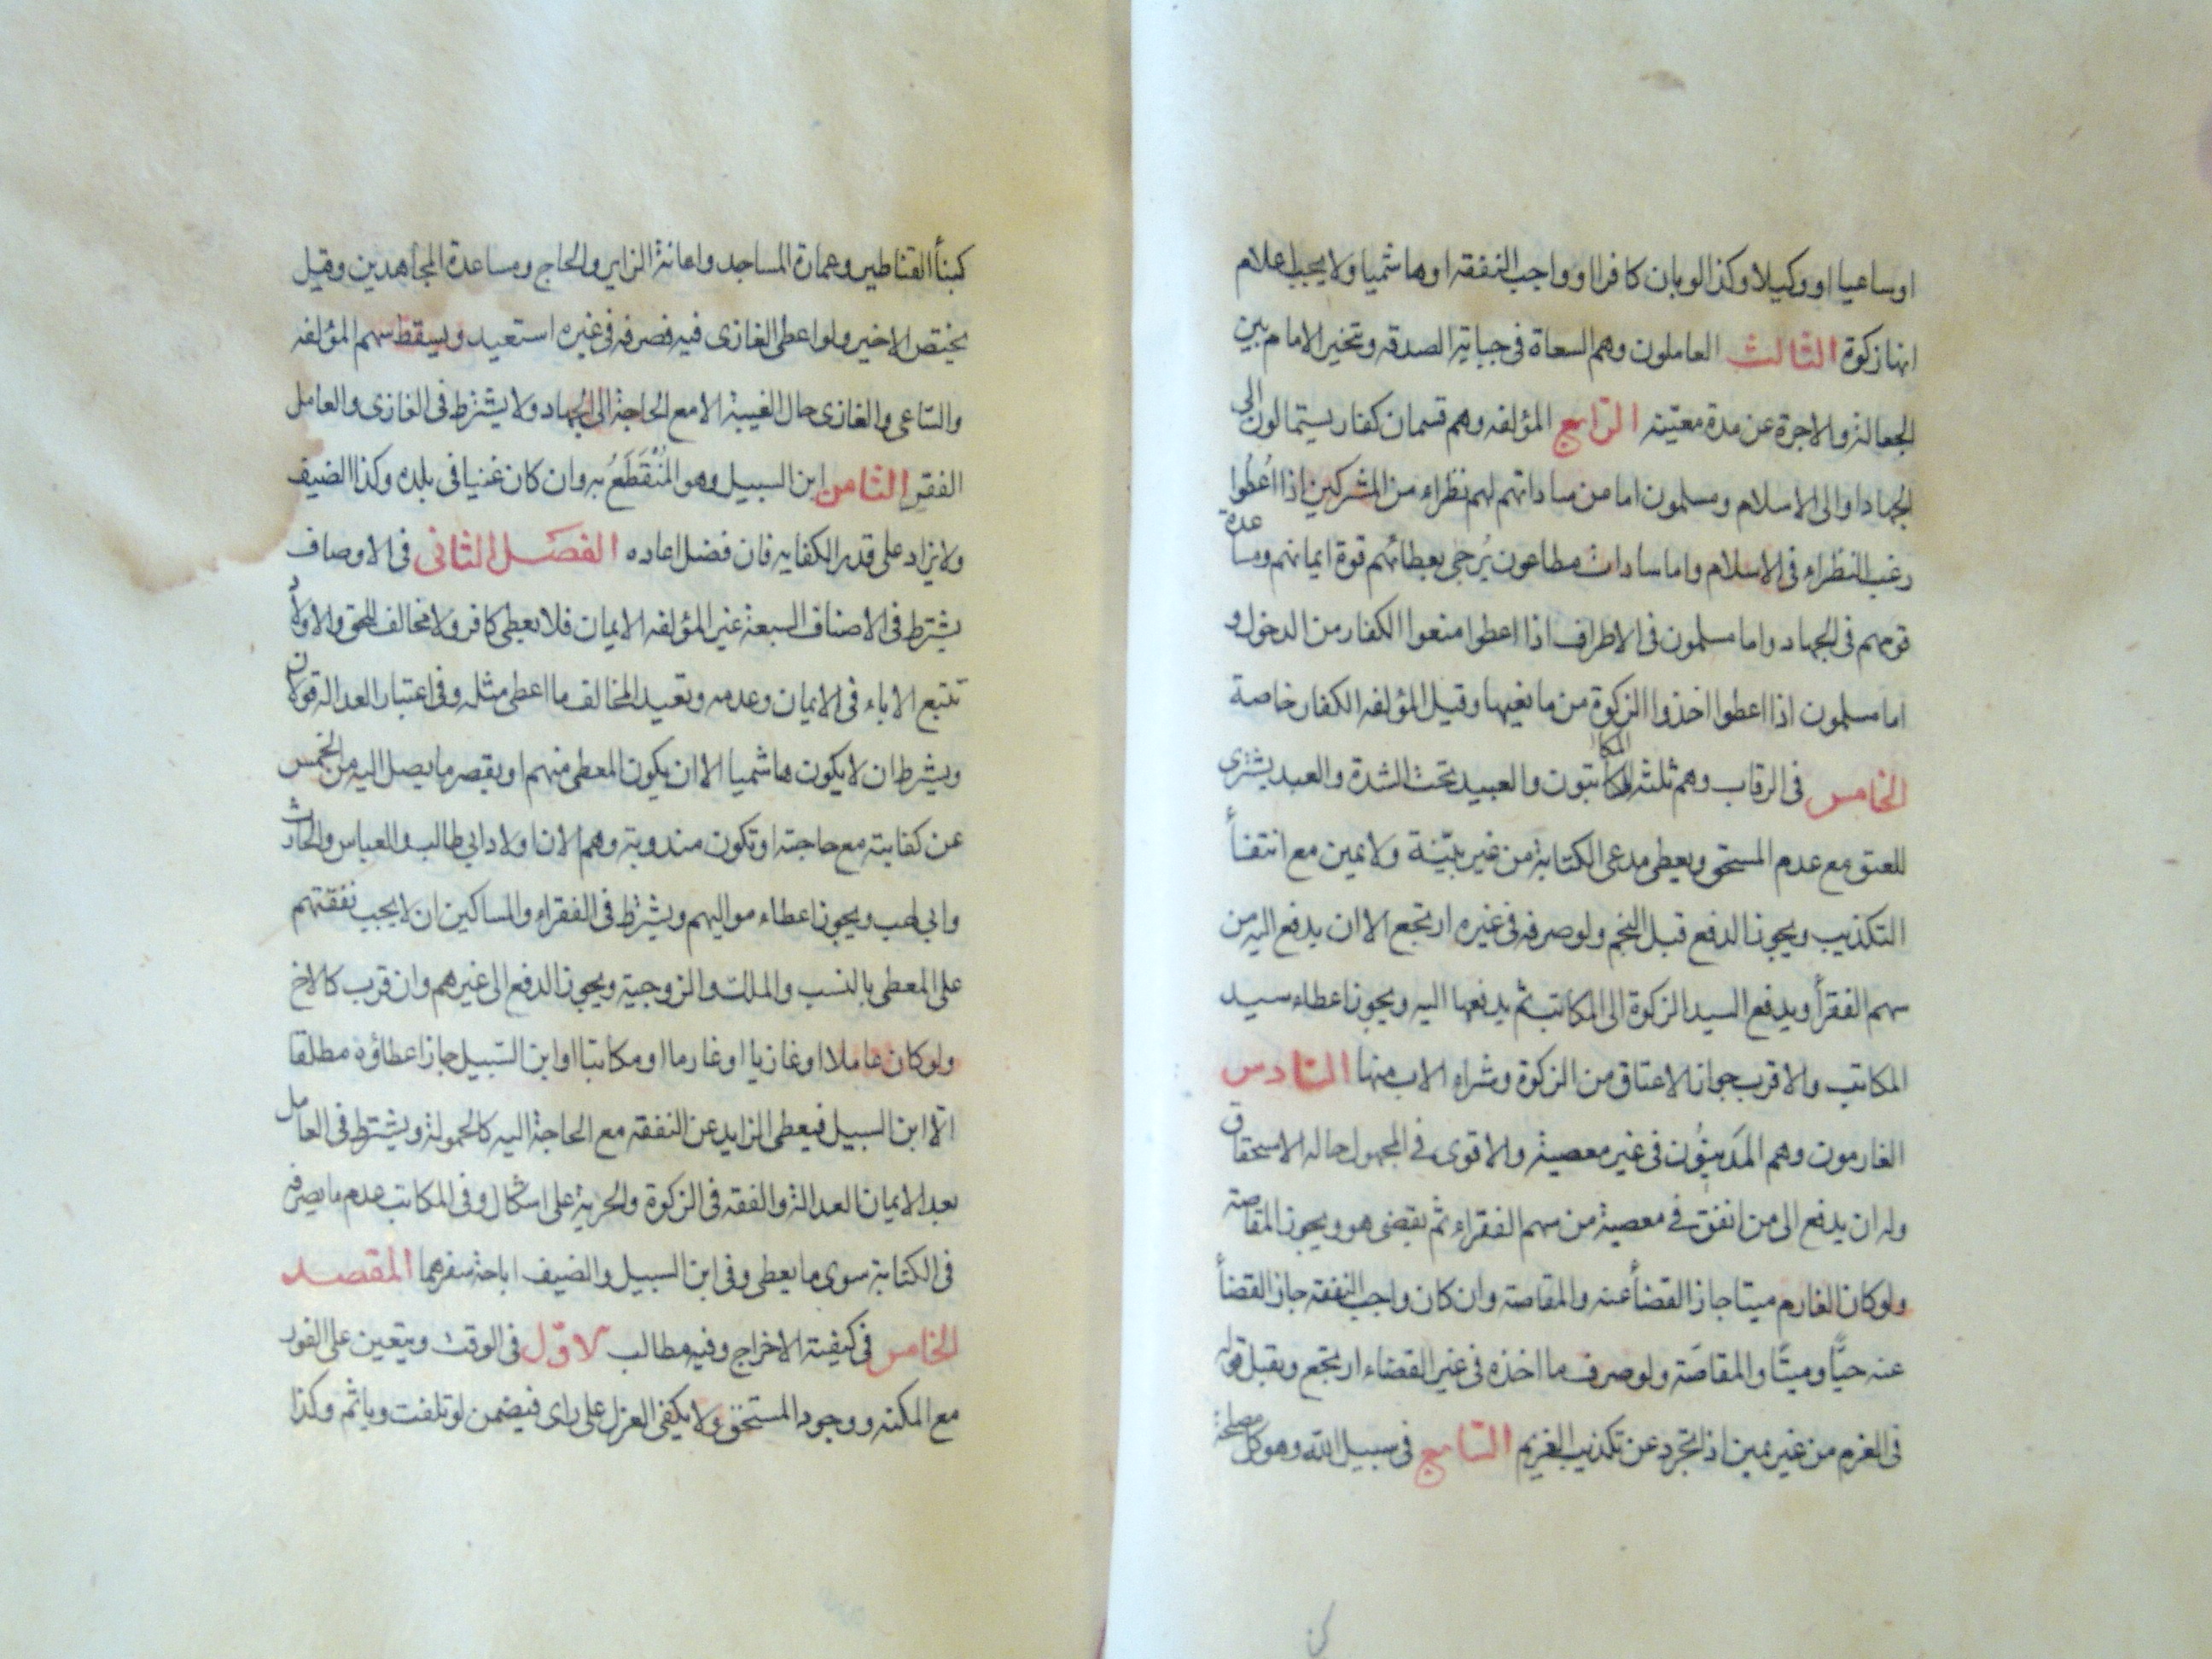 اوساعيا او وكيلا وكذا لو بان كافرا او واجب النفقه او هاشميا ولا يجب اعلام
انها زكوة الثالث العاملون وهم السعاة فى جباية الصدقه وتخير الامام بين
الجعالة والاجرة عن مدة معينه الرابع المؤلفه وهم قسمان كفار يستمالون الى
الجهاد او الى الاسلام ومسلمون اما من ساداتهم لهم نظراء من المشركين اذا اُعطُوا
رغب النظراء فى الاسلام واما سادات مطاعون يُرجى بعطائهم قوة ايمانهم ومساعدة
قومهم فى الجهاد واما مسلمون فى الاطراف اذا اعطوا منعوا الكفار من الدخول و
اما مسلمون اذا اعطوا اخذوا الزكوة من مانعيها وقيل المؤلفه الكفار خاصة
الخامس فى الرقاب وهم ثلثه المكاتبون والعبيد تحت الشدة والعبد يشترى
للعتق مع عدم المستحق ويعطى مدعى الكتابة من غير بيّنة ولا يمين مع انتفأ
التكذيب ويجوز الدفع قبل النجم ولو صرفه فى غيره ارتجع الا ان يدفع اليه من
سهم الفقرأ ويدفع السيد الزكوة الى المكاتب ثم يدفعها اليه ويجوز اعطاء سيد
المكاتب والاقرب جواز الاعتاق من الزكوة وشراء الاب منها السادس
الغارمون وهم المَدينُون فى غير معصية والاقوى فى المجهول حاله الاستحقاق
وله ان يدفع الى من انفق فى معصية من سهم الفقراء ثم يقضى هو ويجوز المقاصة
ولو كان الغارم ميتا جاز القضأ عنه والمقاصة وان كان واجب النفقه جاز القضأ
عنه حيًّا وميتًا والمقاصّة ولو صرف ما اخذه فى غير القضاء ارتجع ويقبل قوله
فى الغرم من غير يمين اذا تجرد عن تكذيب الغريم السابع فى سبيل الله وهو كل مصلحة
كبنأ القناطير وعمارة المساجد واعانة الزاير والحاج ومساعدة المجاهدين وقيل
يختص الاخير ولو اعطى الغازى فيه فصرفه فى غيره استعيد ويسقط سهم المؤلفه
والساعى والغازى حال الغيبة الا مع الحاجة الى الجهاد ولا يشترط فى الغازى والعامل
الفقر الثامن ابن السبيل وهو المُنْقَطَعُ به وان كان غنيا فى بلده وكذا الضيف
ولا يزاد على قدر الكفايه فان فضل اعاده الفصل الثانى فى الاوصاف
يشترط فى الاصناف السبعة غير المؤلفه الايمان فلا يعطى كافر ولا مخالف للحق والاولاد
تتبع الاباء فى الايمان وعدمه وتعيد المخالف ما اعطى مثله وفى اعتبار العداله قولان
ويشرط ان لا يكون هاشميا الا ان يكون المعطى منهم او يقصر ما يصل اليه من الخمس
عن كفايته مع حاجته او تكون مندوبة وهم الان اولاد ابي طالب والعباس والحارث
وابي لهب ويجوز اعطاء مواليهم ويشترط فى الفقراء والمساكين ان لا يجب نفقتهم
على المعطى بالنسب والملك والزوجية ويجوز الدفع الى غيرهم وان قرب كالاخ
ولو كان عاملا او غازيا او غارما او مكاتبا او ابن السبيل جاز اعطاؤه مطلقا
الّا ابن السبيل فيعطى الزايد عن النفقه مع الحاجة اليه كالحمولة ويشترط فى العامل
بعد الايمان العدالة والفقه فى الزكوة والحرية على اشكال وفى المكاتب عدم ما يصرفه
فى الكتابة سوى ما يعطى وفى ابن السبيل والضيف اباحة سفرهما المقصد
الخامس فى كيفية الاخراج وفيه مطالب الاوّل فى الوقت ويتعين على الفور
مع المكنه ووجود المستحق ولا يكفى العزل على راى فيضمن لو تلفت وياثم وكذا